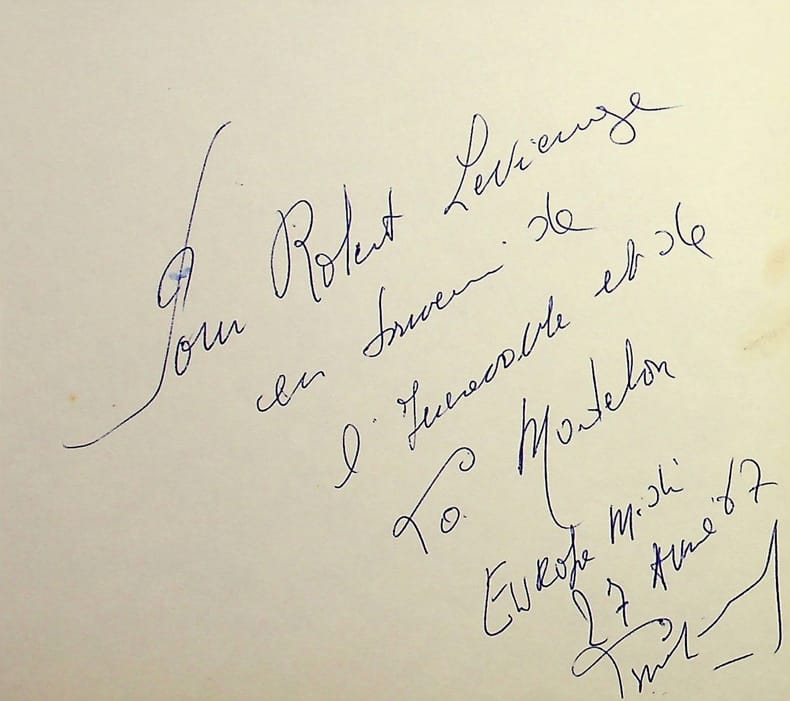 Pour Robert Levieuge
en souvenir de
l'Inracable et de
To Montelon
Europe Midi
27 Avril 67